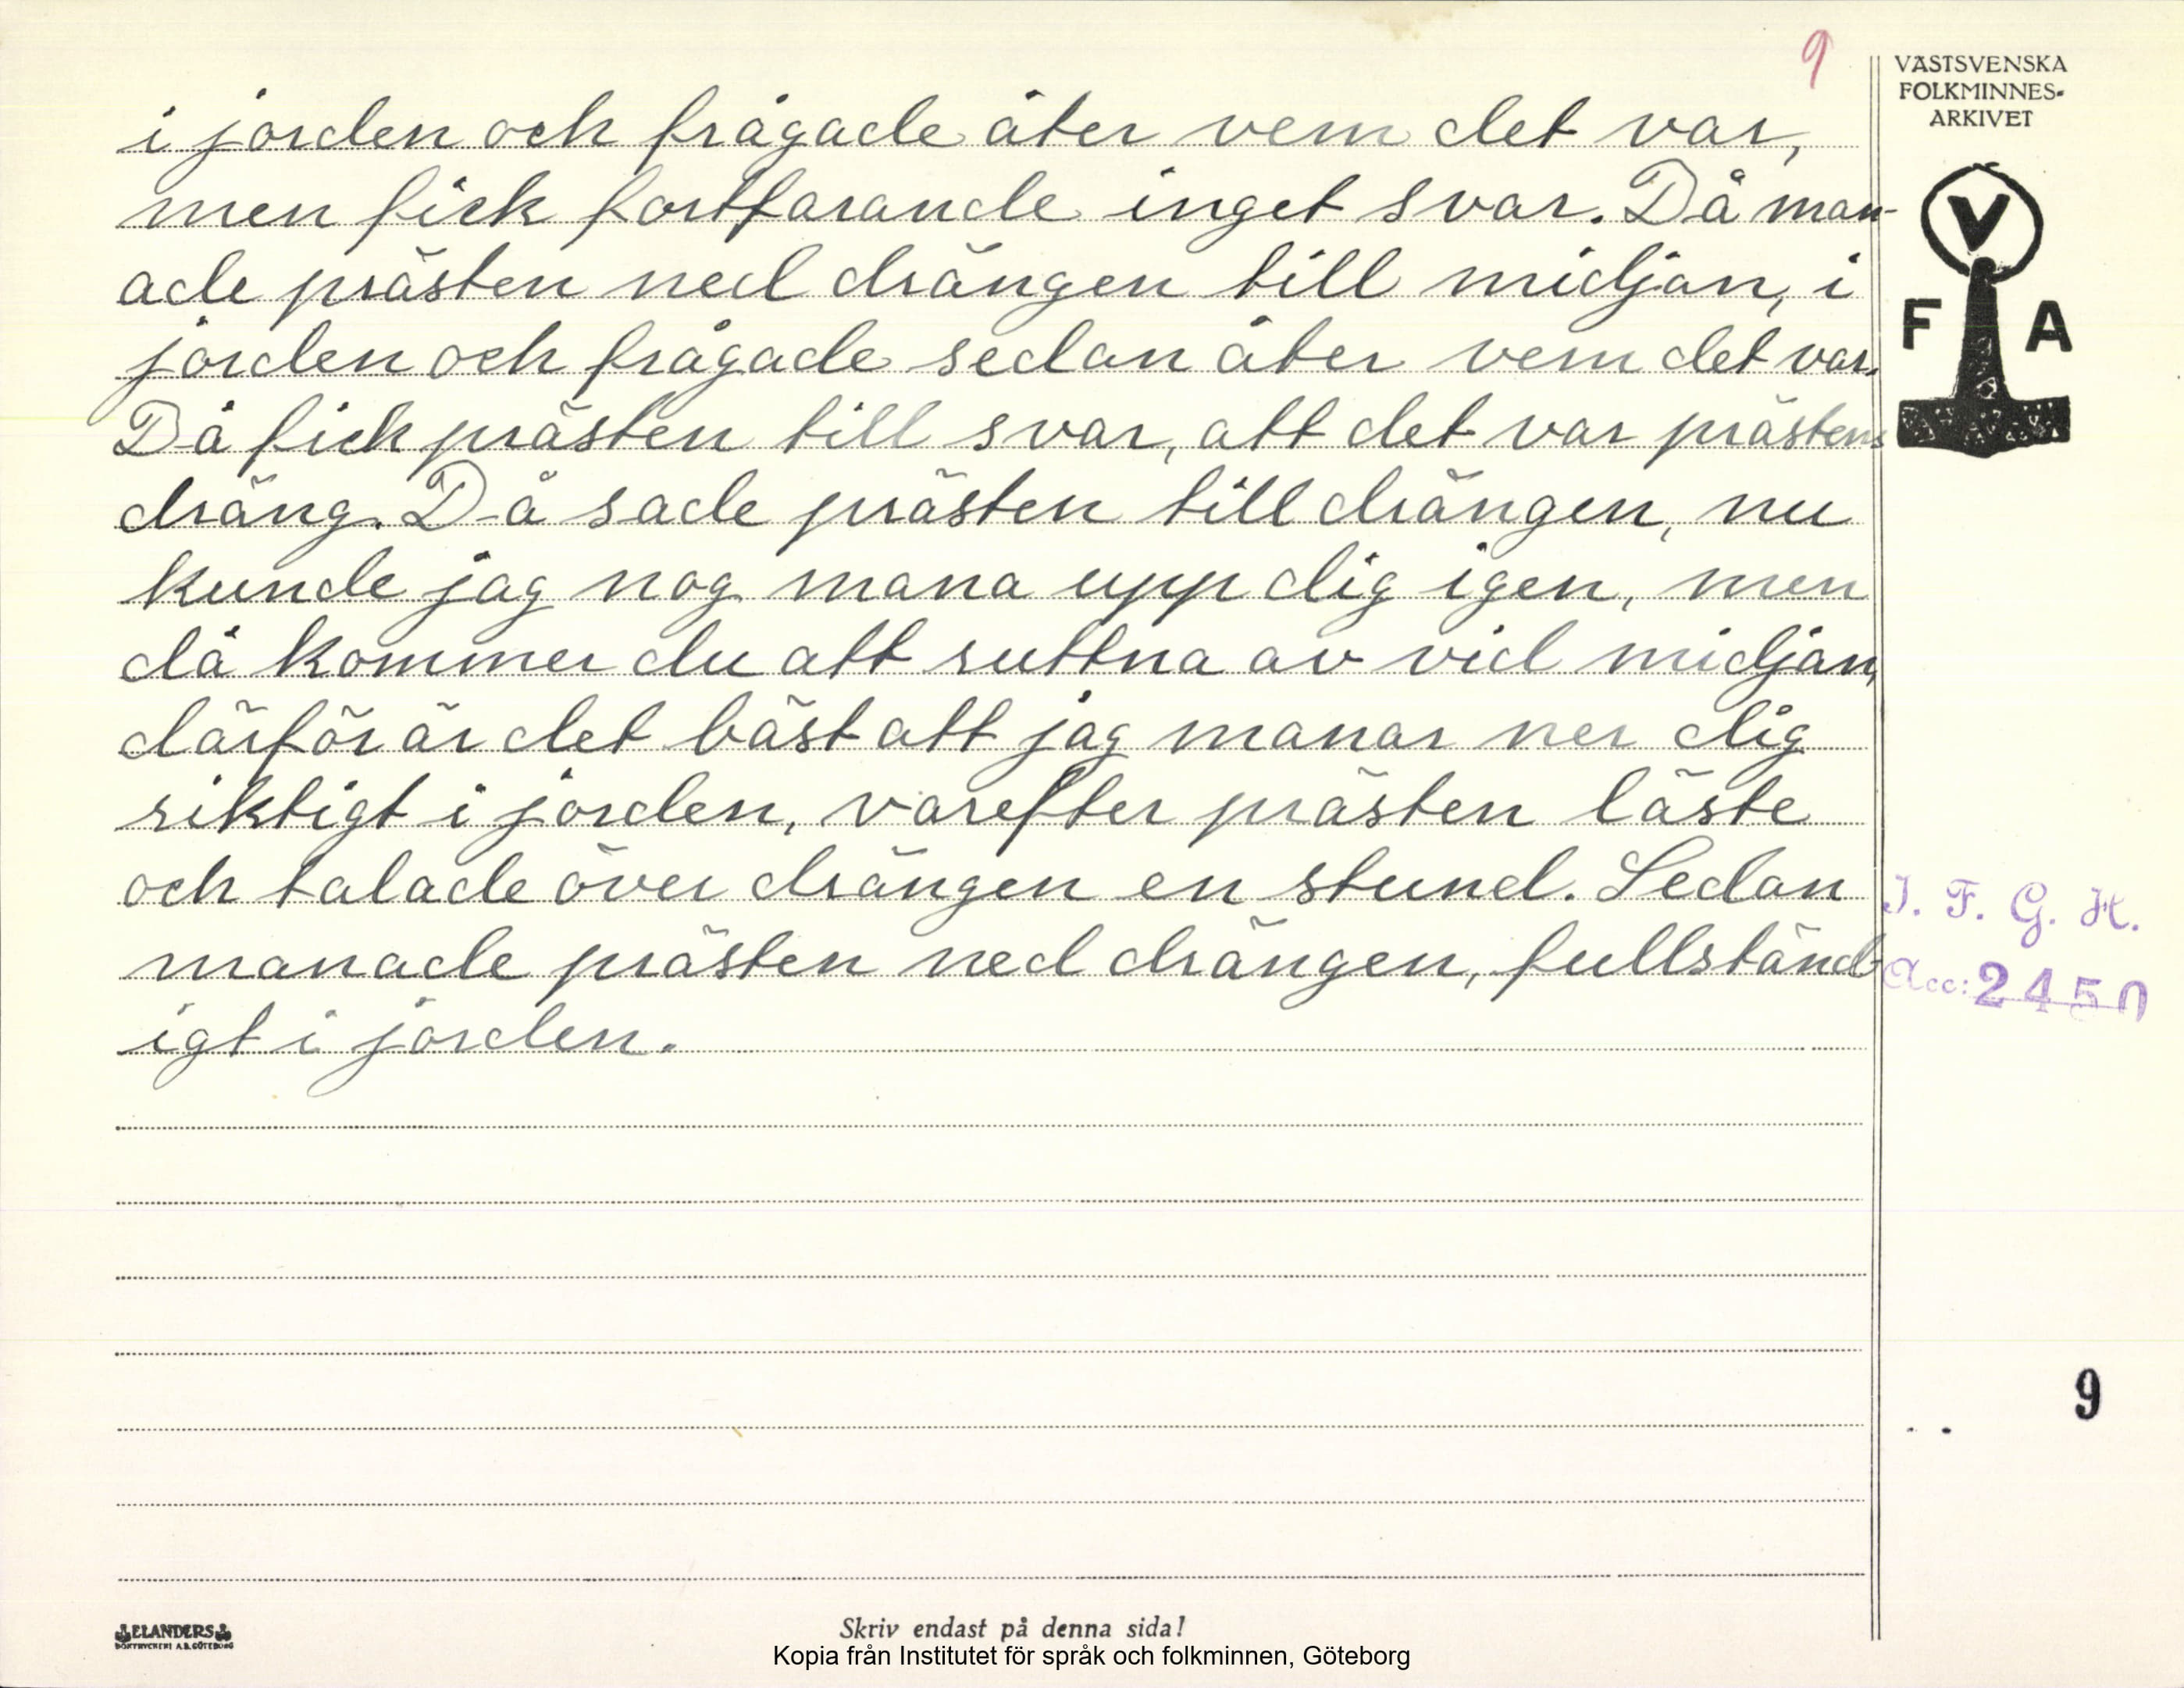 9
VÄSTSVENSKA
FOLKMINNES-
ARKIVET
V
F A
i jorden och frågade åter vem det var,
men fick fortfarande inget svar. Då man-
ade prästen ned drängen till midjan, i
jorden och frågade sedan åter vem det var.
Då fick prästen till svar, att det var prästens
dräng. Då sade prästen till drängen, nu
kunde jag nog mana upp dig igen, men
då kommer du att ruttna av vid midjan,
därför är det bäst att jag manar ner dig
riktigt i jorden, varefter prästen läste
och talade över drängen en stund. Sedan
manade prästen ned drängen, fullständ-
igt i jorden.
I. F. G. H.
Acc: 2450
9
ELANDERS
BOKTRYCKERI A.B. GÖTEBORG
Skriv endast på denna sida!
Kopia från Institutet för språk och folkminnen, Göteborg